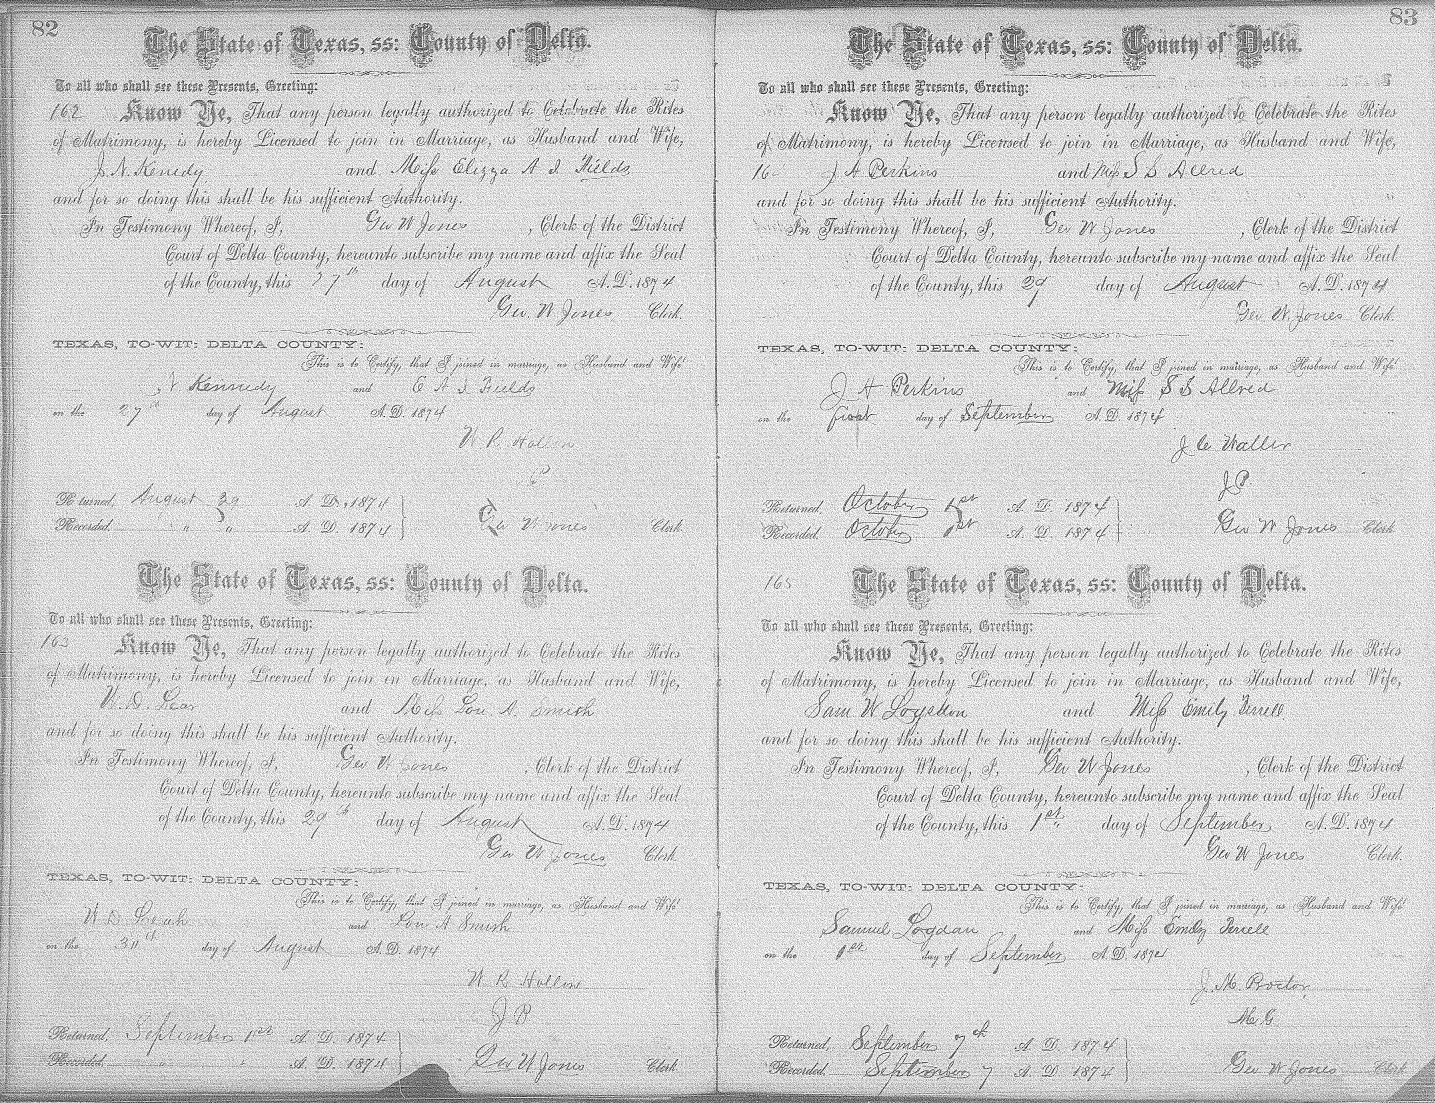 82
The State of Texas, ss: County of Delta.
To all who shall see these Presents, Greeting:
162 Know Ye, That any person legally authorized to Celebrate the Rites
of Matrimony, is hereby Licensed to join in Marriage, as Husband and Wife,
J. N. Kenedy and Miss Elizza A J Fields
and for so doing this shall be his sufficient Authority.
In Testimony Whereof, I, Geo W Jones, Clerk of the District
Court of Delta County, hereunto subscribe my name and affix the Seal
of the County, this 27th day of August A.D. 1874
Geo. W Jones Clerk.
TEXAS, TO-WIT: DELTA COUNTY:
This is to Certify, that I joined in marriage, as Husband and Wife
J N Kennedy and E A J Fields
on the 27th day of August A.D. 1874
W R Hollin
JP
Returned, August 29 A. D., 1874
Recorded, " " A. D. 1874 Geo W Jones Clerk
The State of Texas, ss: County of Delta.
To all who shall see these Presents, Greeting:
163 Know Ye, That any person legally authorized to Celebrate the Rites
of Matrimony, is hereby Licensed to join in Marriage, as Husband and Wife,
W. D. Lear and Miss Lou. A. Smish
and for so doing this shall be his sufficient Authority.
In Testimony Whereof, I, Geo W Jones, Clerk of the District
Court of Delta County, hereunto subscribe my name and affix the Seal
of the County, this 29th day of August A.D. 1874
Geo W Jones Clerk.
TEXAS, TO-WIT: DELTA COUNTY:
This is to Certify, that I joined in marriage, as Husband and Wife
W D Leah and Lou A Smish
on the 30th day of August A.D. 1874
W R Hollin
JP
Returned, September 1st A. D. 1874
Recorded, " " A. D. 1874 Geo W Jones Clerk
83
The State of Texas, ss: County of Delta.
To all who shall see these Presents, Greeting:
Know Ye, That any person legally authorized to Celebrate the Rites
of Matrimony, is hereby Licensed to join in Marriage, as Husband and Wife,
16 J A Perkins and Miss S S Allred
and for so doing this shall be his sufficient Authority.
In Testimony Whereof, I, Geo W Jones, Clerk of the District
Court of Delta County, hereunto subscribe my name and affix the Seal
of the County, this 29 day of August A.D. 1874
Geo. W. Jones Clerk.
TEXAS, TO-WIT: DELTA COUNTY:
This is to Certify, that I joined in marriage, as Husband and Wife
J A Perkins and Miss S S Allred
on the first day of September A.D. 1874
J C Waller
JP
Returned, October 1st A. D. 1874
Recorded, October 1st A. D. 1874 Geo W Jones Clerk
165 The State of Texas, ss: County of Delta.
To all who shall see these Presents, Greeting:
Know Ye, That any person legally authorized to Celebrate the Rites
of Matrimony, is hereby Licensed to join in Marriage, as Husband and Wife,
Sam W Logsdon and Miss Emily Terrell
and for so doing this shall be his sufficient Authority.
In Testimony Whereof, I, Geo W Jones, Clerk of the District
Court of Delta County, hereunto subscribe my name and affix the Seal
of the County, this 1st day of September A.D. 1874
Geo W Jones Clerk.
TEXAS, TO-WIT: DELTA COUNTY:
This is to Certify, that I joined in marriage, as Husband and Wife
Samuel Logdan and Miss Emily Terrell
on the 1st day of September A.D. 1874
J. M. Proctor
M G
Returned, September 7th A. D. 1874
Recorded, September 7 A. D. 1874 Geo W Jones Clerk